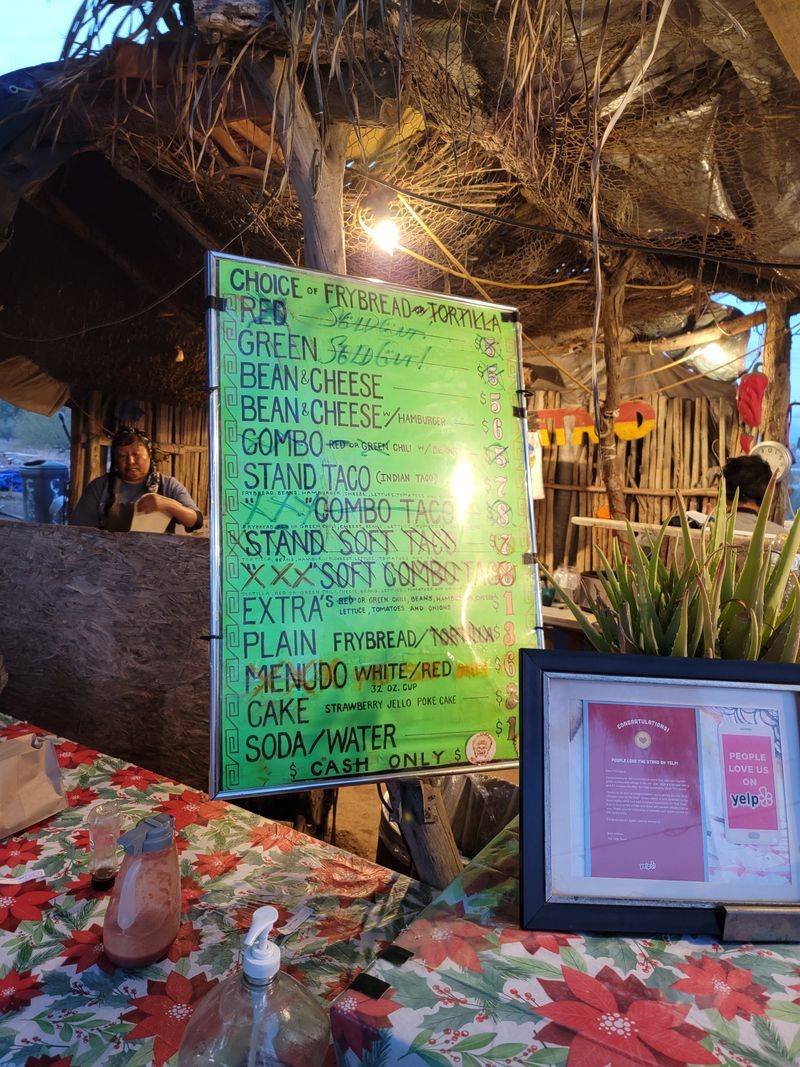 CHOICE OF FRYBREAD OR TORTILLA
RED Sold Out! $5
GREEN Sold Out! $5
BEAN & CHEESE $5
BEAN & CHEESE W/ HAMBURGER $6
COMBO RED OR GREEN CHILI W/ BEANS
STAND TACO (INDIAN TACO) $7
FRYBREAD, BEANS, HAMBURGER, CHEESE, LETTUCE, TOMATOES
COMBO TACO $8
STAND SOFT TACO $7
XXX SOFT COMBO TACO $8
EXTRA'S RED OR GREEN CHILI, BEANS, HAMBURGER, CHEESE $1
LETTUCE, TOMATOES AND ONIONS
PLAIN FRYBREAD/TORTILLA $3
MENUDO WHITE/RED $6
32 OZ. CUP
CAKE STRAWBERRY JELLO POKE CAKE $3
SODA/WATER $1
$ CASH ONLY $
CONGRATULATIONS!
PEOPLE LOVE THE STAND ON YELP!
PEOPLE
LOVE US
ON
yelp